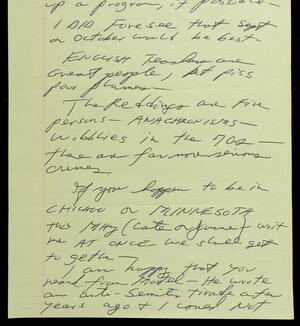 up a program, if possible -
I DID Foresee that Sept
or October would be best.
ENGLISH Teachers are
Great people, but piss
poor planners.
The Reddings are Fine
persons - ANACHRONISMS -
Wobblies in the 70s -
there are far more serious
crimes.
If you happen to be in
CHICAGO or MINNESOTA
this MAY (late or June) writ
me AT ONCE we shall get
together -
I am happy that you
heard from - He wrote
an anti-Semitic tirade
years ago & I could Not